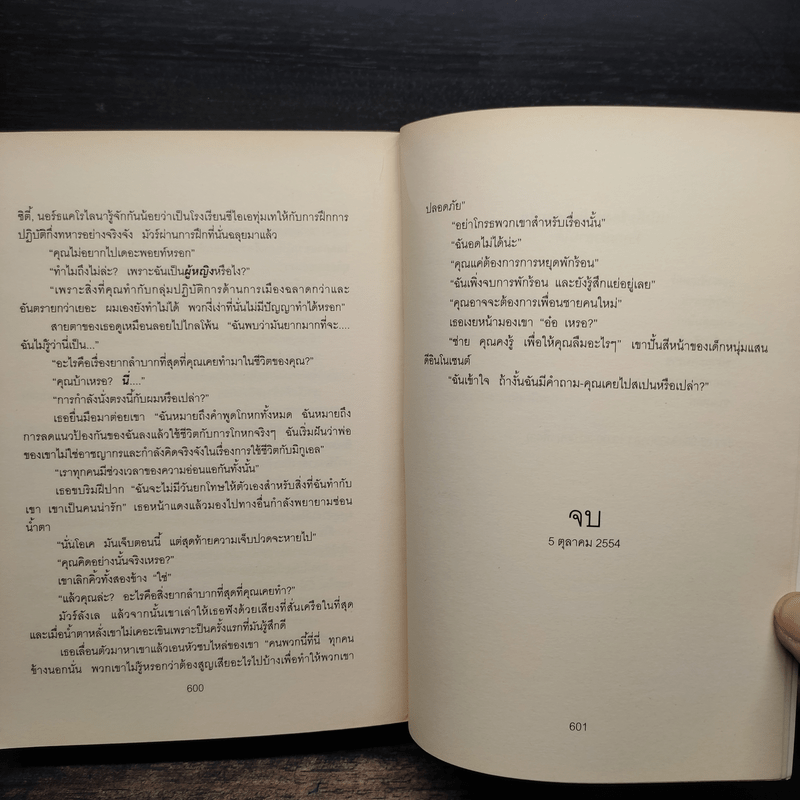 ซิตี้, นอร์ธแคโรไลนารู้จักกันน้อยว่าเป็นโรงเรียนซีไอเอทุ่มเทให้กับการฝึกการ
ปฏิบัติกึ่งทหารอย่างจริงจัง มัวร์ผ่านการฝึกที่นั่นฉลุยมาแล้ว
“คุณไม่อยากไปเดอะพอยท์หรอก”
“ทำไมถึงไม่ล่ะ? เพราะฉันเป็นผู้หญิงหรือไง?”
“เพราะสิ่งที่คุณทำกับกลุ่มปฏิบัติการด้านการเมืองฉลาดกว่าและ
อันตรายกว่าเยอะ ผมเองยังทำไม่ได้ พวกงี่เง่าที่นั่นไม่มีปัญญาทำได้หรอก”
สายตาของเธอดูเหมือนลอยไปไกลโพ้น “ฉันพบว่ามันยากมากที่จะ....
ฉันไม่รู้ว่านี่เป็น...”
“อะไรคือเรื่องยากลำบากที่สุดที่คุณเคยทำมาในชีวิตของคุณ?”
“คุณบ้าเหรอ? นี่....”
“การกำลังนั่งตรงนี้กับผมหรือเปล่า?”
เธอยื่นมือมาต่อยเขา “ฉันหมายถึงคำพูดโกหกทั้งหมด ฉันหมายถึง
การลดแนวป้องกันของฉันลงแล้วใช้ชีวิตกับการโกหกจริงๆ ฉันเริ่มฝันว่าพ่อ
ของเขาไม่ใช่อาชญากรและกำลังคิดจริงจังในเรื่องการใช้ชีวิตกับมิกูเอล”
“เราทุกคนมีช่วงเวลาของความอ่อนแอกันทั้งนั้น”
เธอขบริมฝีปาก “ฉันจะไม่มีวันยกโทษให้ตัวเองสำหรับสิ่งที่ฉันทำกับ
เขา เขาเป็นคนน่ารัก” เธอหน้าแดงแล้วมองไปทางอื่นกำลังพยายามซ่อน
น้ำตา
“นั่นโอเค มันเจ็บตอนนี้ แต่สุดท้ายความเจ็บปวดจะหายไป”
“คุณคิดอย่างนั้นจริงเหรอ?”
เขาเลิกคิ้วทั้งสองข้าง “ใช่”
“แล้วคุณล่ะ? อะไรคือสิ่งยากลำบากที่สุดที่คุณเคยทำ?”
มัวร์ลังเล แล้วจากนั้นเขาเล่าให้เธอฟังด้วยเสียงที่สั่นเครือในที่สุด
และเมื่อน้ำตาหลั่งเขาไม่เคอะเขินเพราะเป็นครั้งแรกที่มันรู้สึกดี
เธอเลื่อนตัวมาหาเขาแล้วเอนหัวซบไหล่ของเขา “คนพวกนี้ที่นี่ ทุกคน
ข้างนอกนั่น พวกเขาไม่รู้หรอกว่าต้องสูญเสียอะไรไปบ้างเพื่อทำให้พวกเขา
600
ปลอดภัย”
“อย่าโกรธพวกเขาสำหรับเรื่องนั้น”
“ฉันอดไม่ได้น่ะ”
“คุณแค่ต้องการการหยุดพักร้อน”
“ฉันเพิ่งจบการพักร้อน และยังรู้สึกแย่อยู่เลย”
“คุณอาจจะต้องการเพื่อนชายคนใหม่”
เธอเงยหน้ามองเขา “อ๋อ เหรอ?”
“ช่าย คุณคงรู้ เพื่อให้คุณลืมอะไรๆ” เขาปั้นสีหน้าของเด็กหนุ่มแสน
ดีอินโนเซนต์
“ฉันเข้าใจ ถ้างั้นฉันมีคำถาม-คุณเคยไปสเปนหรือเปล่า?”
จบ
5 ตุลาคม 2554
601